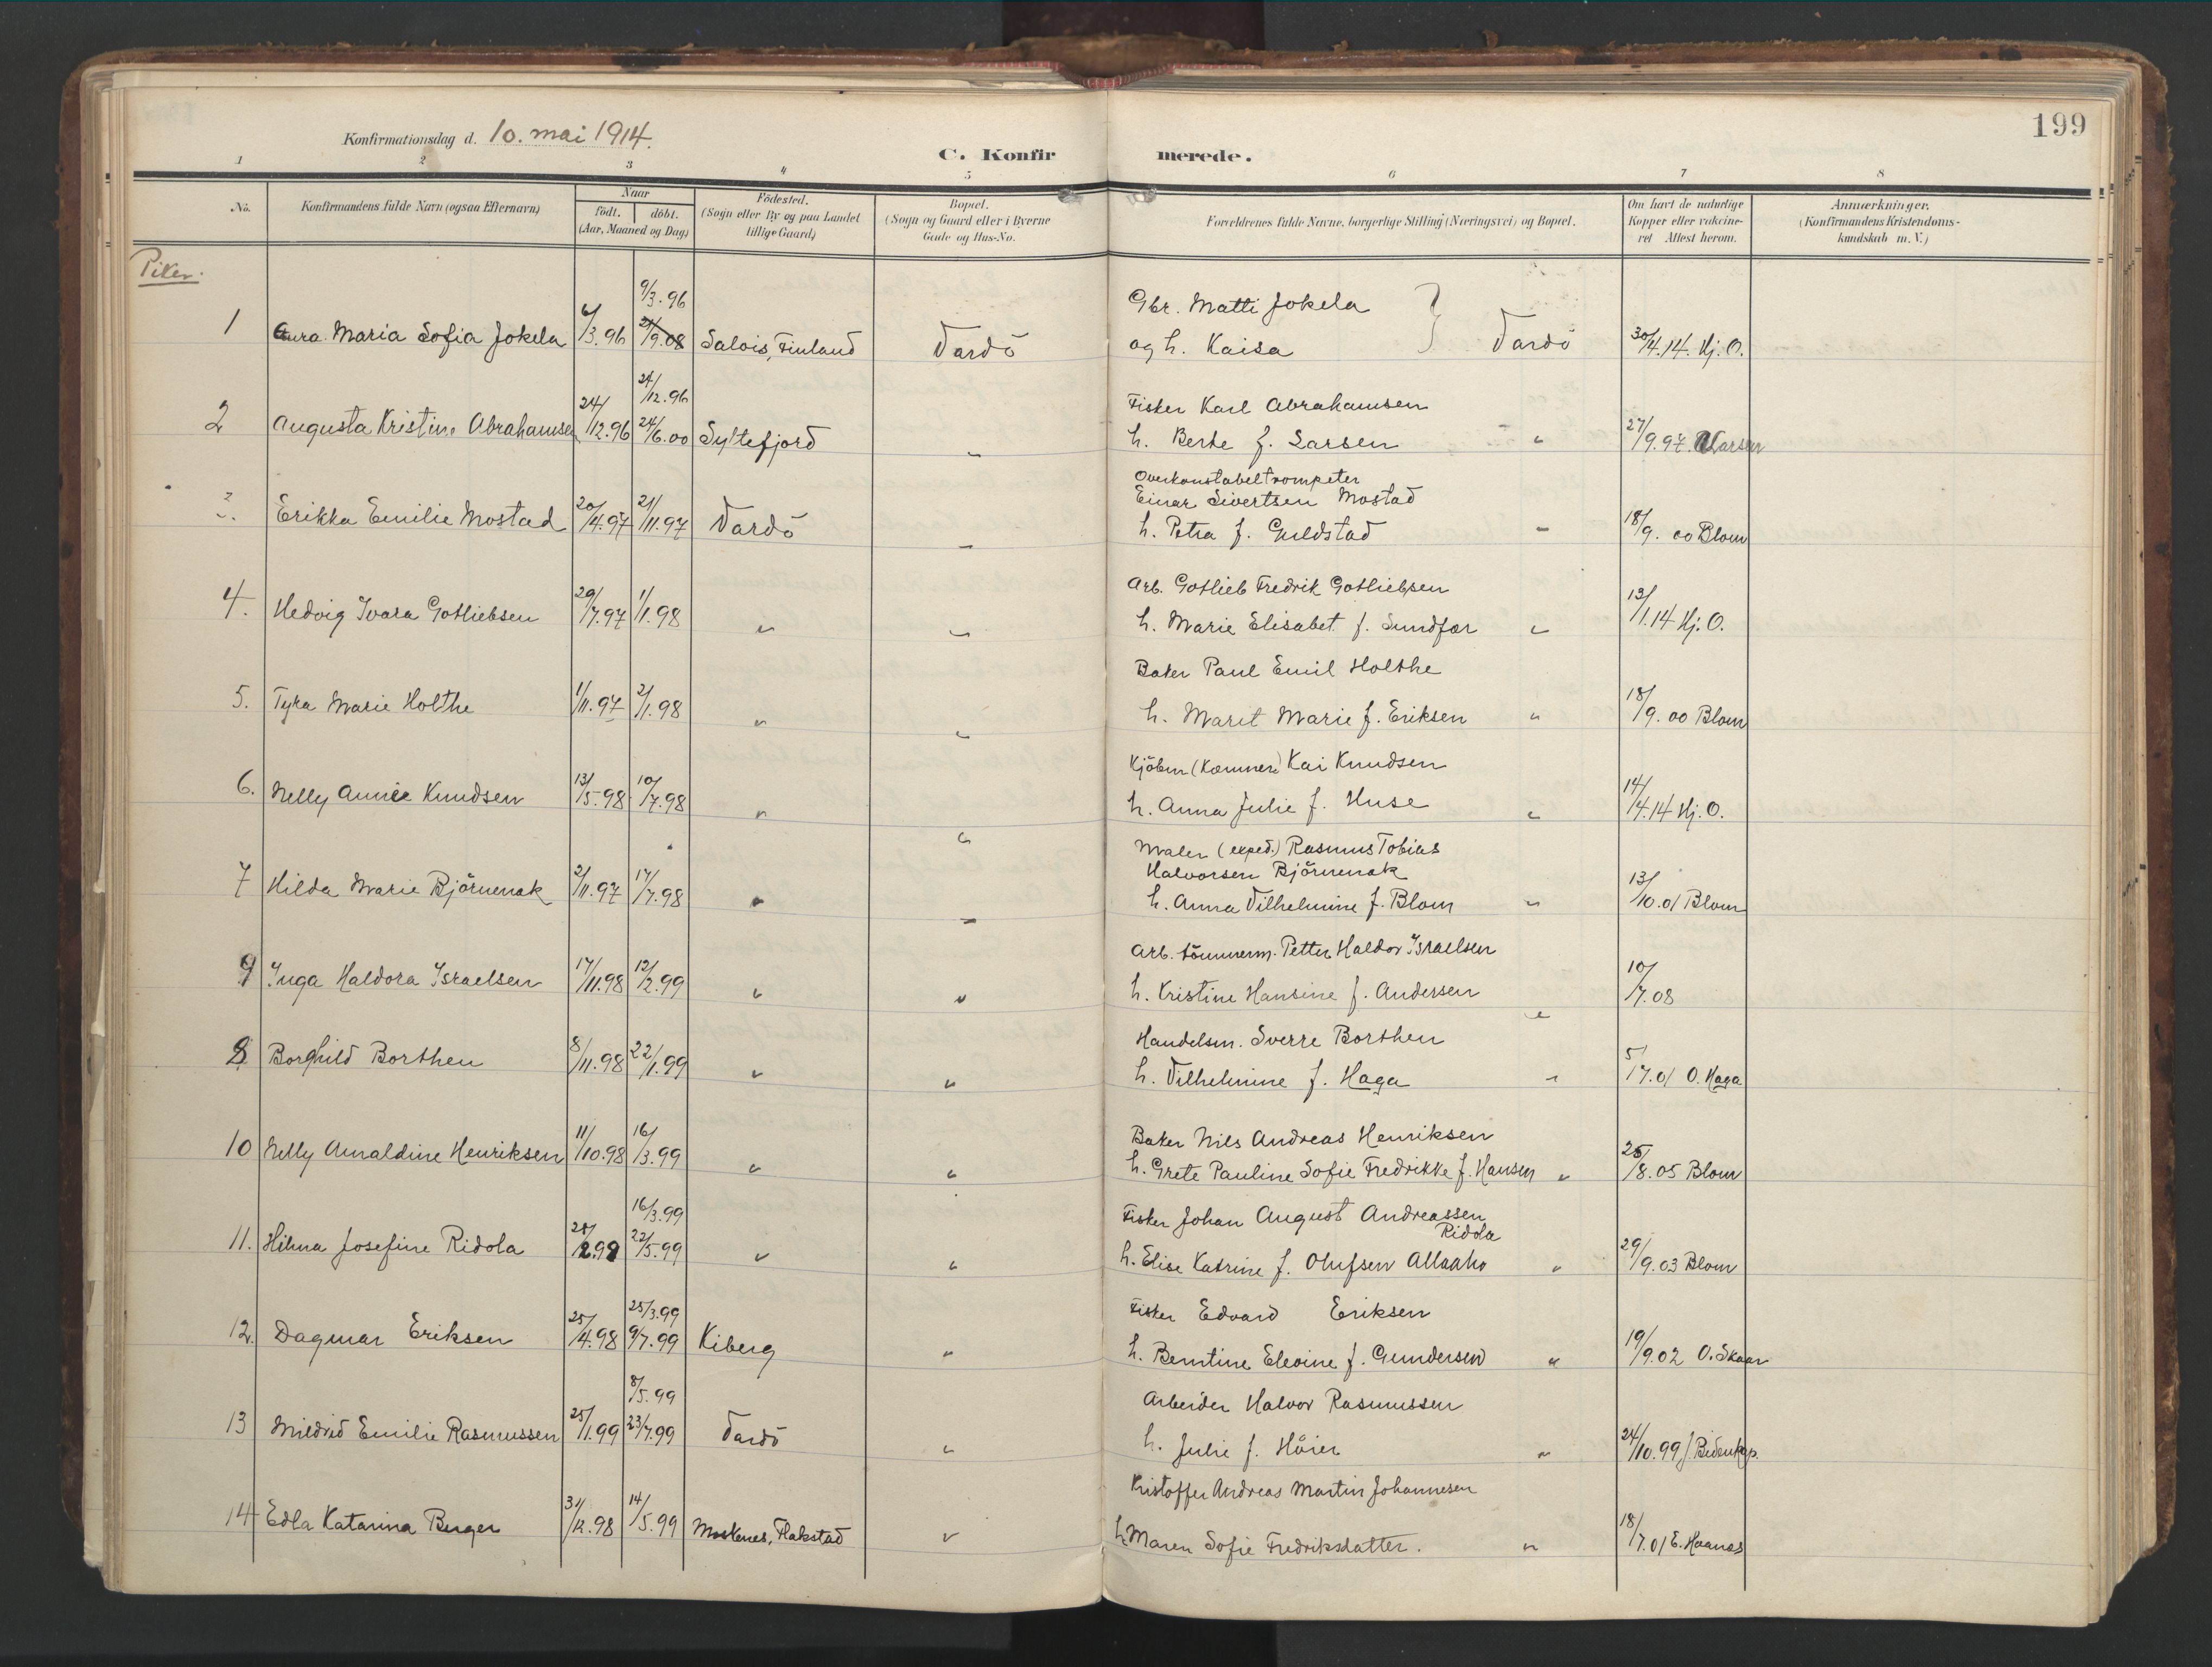 199
Konfirmationsdag d. 10. mai 1914.
C. Konfir merede.
1 2 3 4 5 6 7 8
No. Konfirmandens fulde Navn (ogsaa Efternavn) Naar födt. döbt. (Aar, Maaned og Dag)
Födested. (Sogn eller By og paa Landet tillige Gaard)
Bopæl. (Sogn og Gaard eller i Byerne Gade og Hus-No.
Forældrenes fulde Navne, borgerlige Stilling (Næringsvei) og Bopæl.
Om havt de naturlige Kopper eller vakcineret Attest herom.
Anmærkninger. (Konfirmandens Kristendomskundskab m. V.)
Piker.
9/3.96 Gbr. Matti Jokela
1 Maria Sofia Jokela 6/3.96 21/9.08 Salois, Finland Vardö og h. Kaisa } Vardö 30/4.14. Hj. O.
24/12.96 Fisker Karl Abrahamsen
2 Augusta Kristine Abrahamsen 24/12.96 24/6.00 Syltefjord " h. Berte f. Larsen " 27/9.97. Larsen
Overkonstabeltrompeter
Einar Sivertsen Mostad
3. Erikka Emilie Mostad 20/4.97 21/11.97 Vardö " h. Petra f. Guldstad " 18/9. 00 Blom
Arb. Gotlieb Fredrik Gotliebsen
4. Hedvig Ivara Gotliebsen 29/7.97 1/1.98 " " h. Marie Elisabet f. Sundfær " 13/1.14 Hj. O.
Baker Paul Emil Holthe
5. Tyra Marie Holthe 1/11.97 2/1.98 " " h. Marit Marie f. Eriksen " 18/9. 00 Blom
Kjöbm (Kæmner) Kai Knudsen
6. Nelly Annie Knudsen 13/5.98 10/7.98 " " h. Anna Julie f. Huse " 14/4.14 Hj. O.
Maler (exped.) Rasmus Tobias
Halvorsen Björnenak
7 Hilda Marie Björnenak 2/11.97 17/7.98 " " h. Anna Vilhelmine f. Blom " 13/10.01 Blom
Arb. tömmerm. Petter Haldor Israelsen
9 Inga Haldora Israelsen 17/11.98 12/2.99 " " h. Kristine Hansine f. Andersen " 10/7.08
Handelsm. Sverre Borthen
8 Borghild Borthen 8/11.98 22/1.99 " " h. Vilhelmine f. Haga " 5/7.01 O. Haga
Baker Nils Andreas Henriksen
10 Nelly Arnaldine Henriksen 11/10.98 16/3.99 " " h. Grete Pauline Sofie Fredrikke f. Hansen " 25/8.05 Blom
16/3.99 Fisker Johan August Andreassen
Ridola
11. Hilma Josefine Ridola 28/12.98 22/5.99 " " h. Elise Katrine f. Olufsen Allaaho " 29/9.03 Blom
25/3.99 Fisker Edvard Eriksen
12. Dagmar Eriksen 25/4.98 9/7.99 Kiberg " h. Berntine Elevine f. Gundersen " 19/9.02 O. Skaar
8/5.99 Arbeider Halvor Rasmussen
13 Mildrid Emilie Rasmussen 25/1.99 23/7.99 Vardö " h. Julie f. Höier " 24/10.99 J. Bidenkap.
Kristoffer Andreas Martin Johannesen
14 Edla Katarina Berger 31/12.98 14/5.99 Moskenes, Flakstad " h. Maren Sofie Fredriksdatter. " 18/7.01 E. Haanes